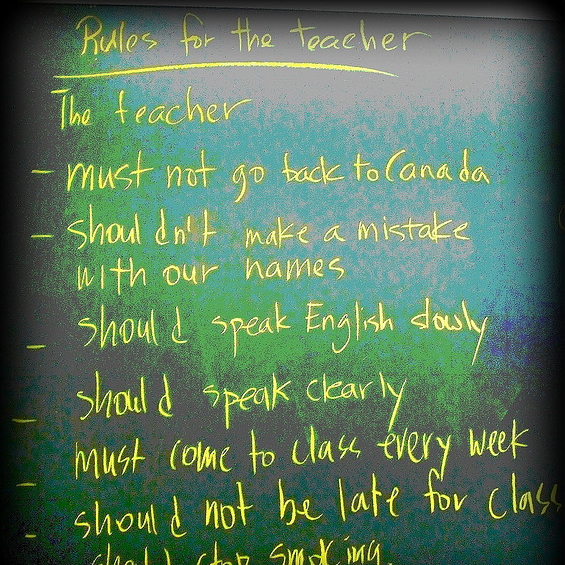 Rules for the teacher
The teacher
- must not go back to Canada
- shouldn't make a mistake
with our names
- should speak English slowly
- should speak clearly
- must come to class every week
- should not be late for class
should stop smoking.